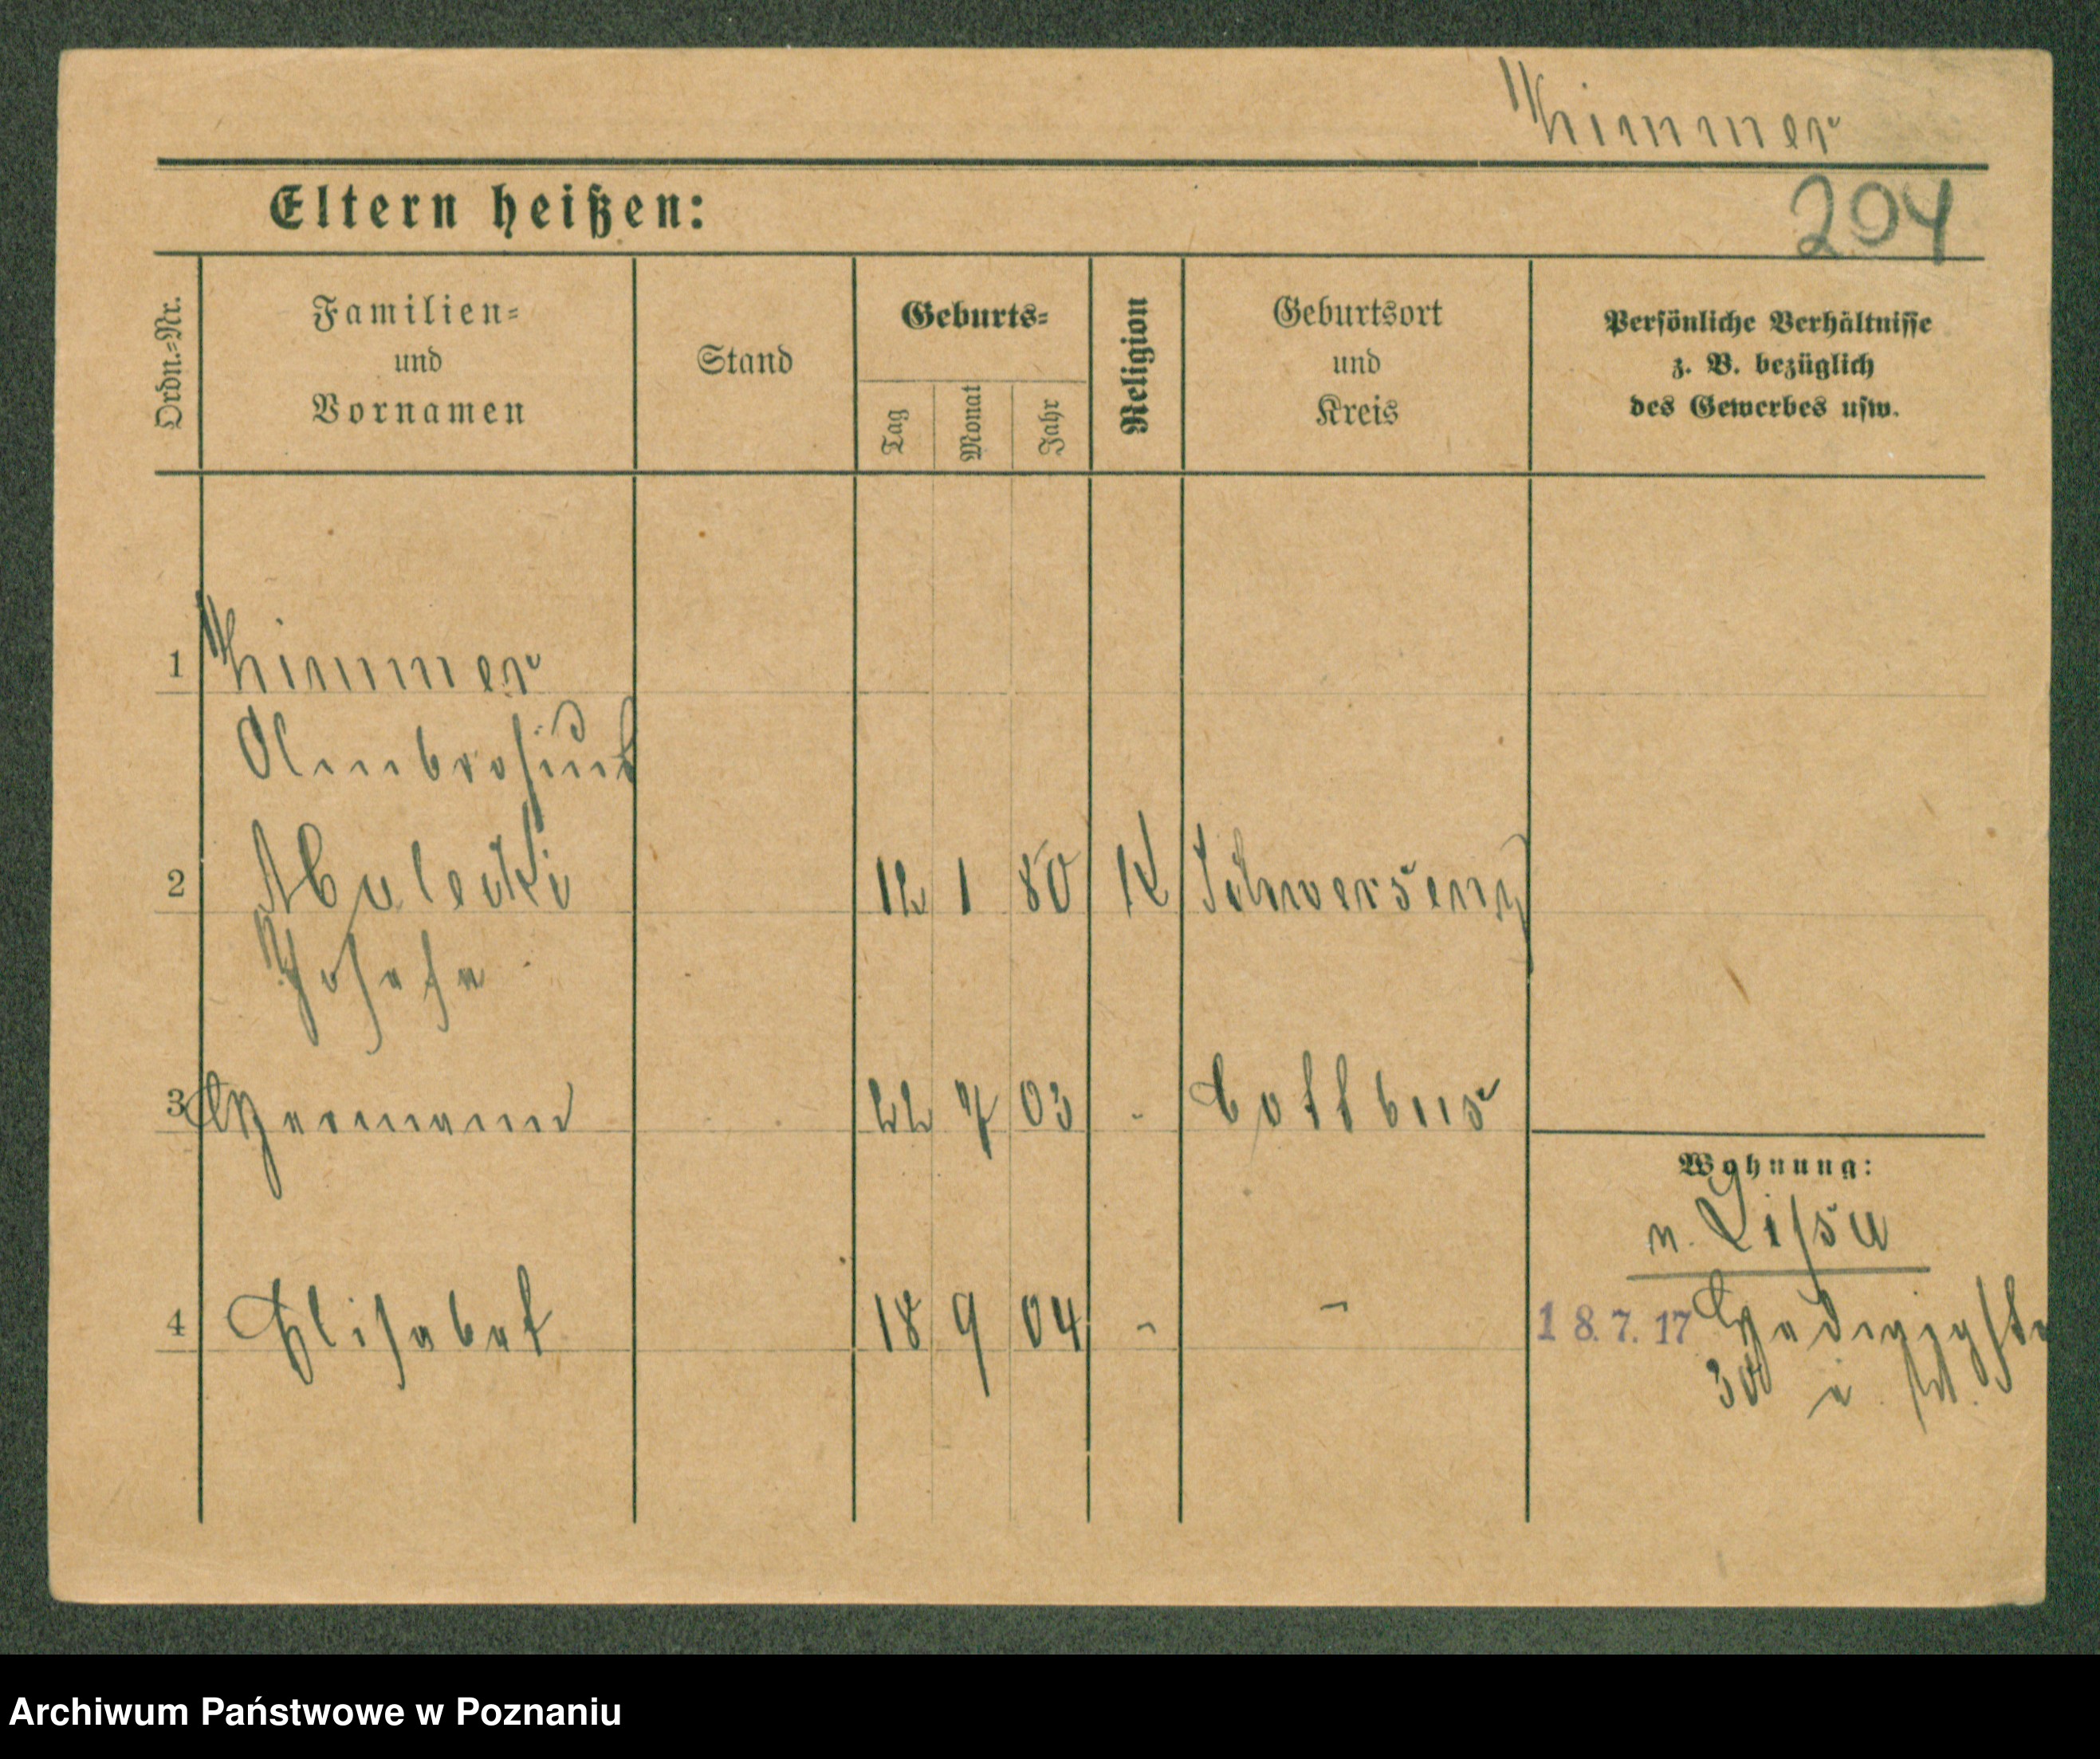 Kimmer
Eltern heißen:
204
Ordn.-Nr.
Familien-
und
Vornamen
Stand
Geburts-
Tag
Monat
Jahr
Religion
Geburtsort
und
Kreis
Persönliche Verhältnisse
z. B. bezüglich
des Gewerbes usw.
1 Kimmer
Ambrosius
2 Malecki 12 1 80 K Schwersenz
Josefa
3 Hermann 22 7 03 " Cottbus
4 Elisabet 18 9 04 " "
Wohnung:
n. Lissa
18.7.17 Hedwigstr
30
Archiwum Państwowe w Poznaniu